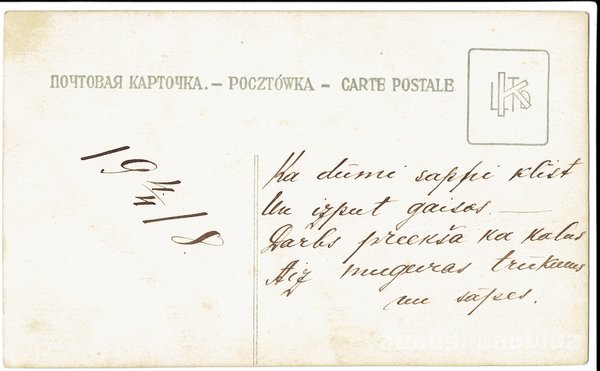 ПОЧТОВАЯ КАРТОЧКА. — POCZTÓWKA — CARTE POSTALE
19 4/II 18.
Ka dūmi sappi klist
Un izput gaisos —
Darbs preekšā ka kalns
Aiz muguras trūkums
un sāpes.
ZUDUSI LATVIJA